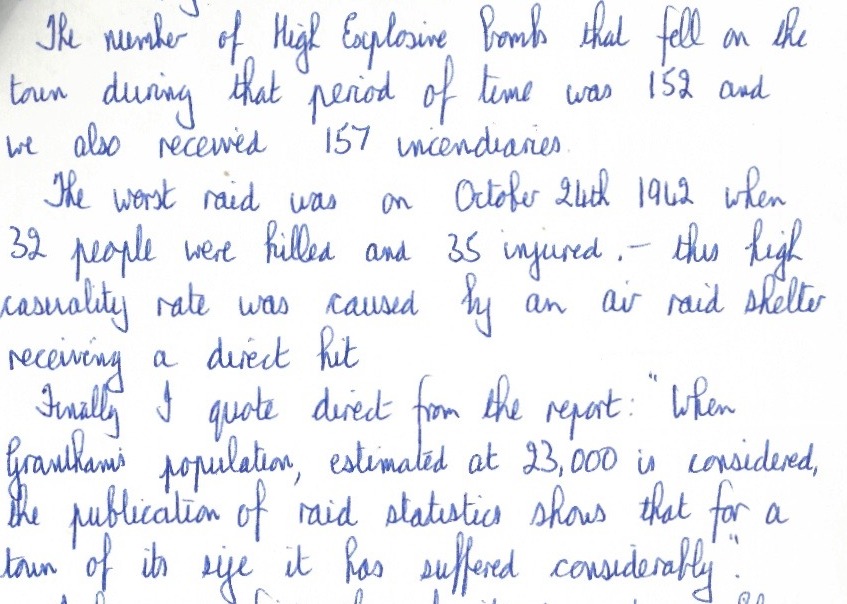 The number of High Explosive bombs that fell on the
town during that period of time was 152 and
we also received 157 incendiaries.
The worst raid was on October 24th 1942 when
32 people were killed and 35 injured. – this high
casuality rate was caused by an air raid shelter
receiving a direct hit
Finally I quote direct from the report: "When
Grantham's population, estimated at 23,000 is considered,
the publication of raid statistics shows that for a
town of its size it has suffered considerably".